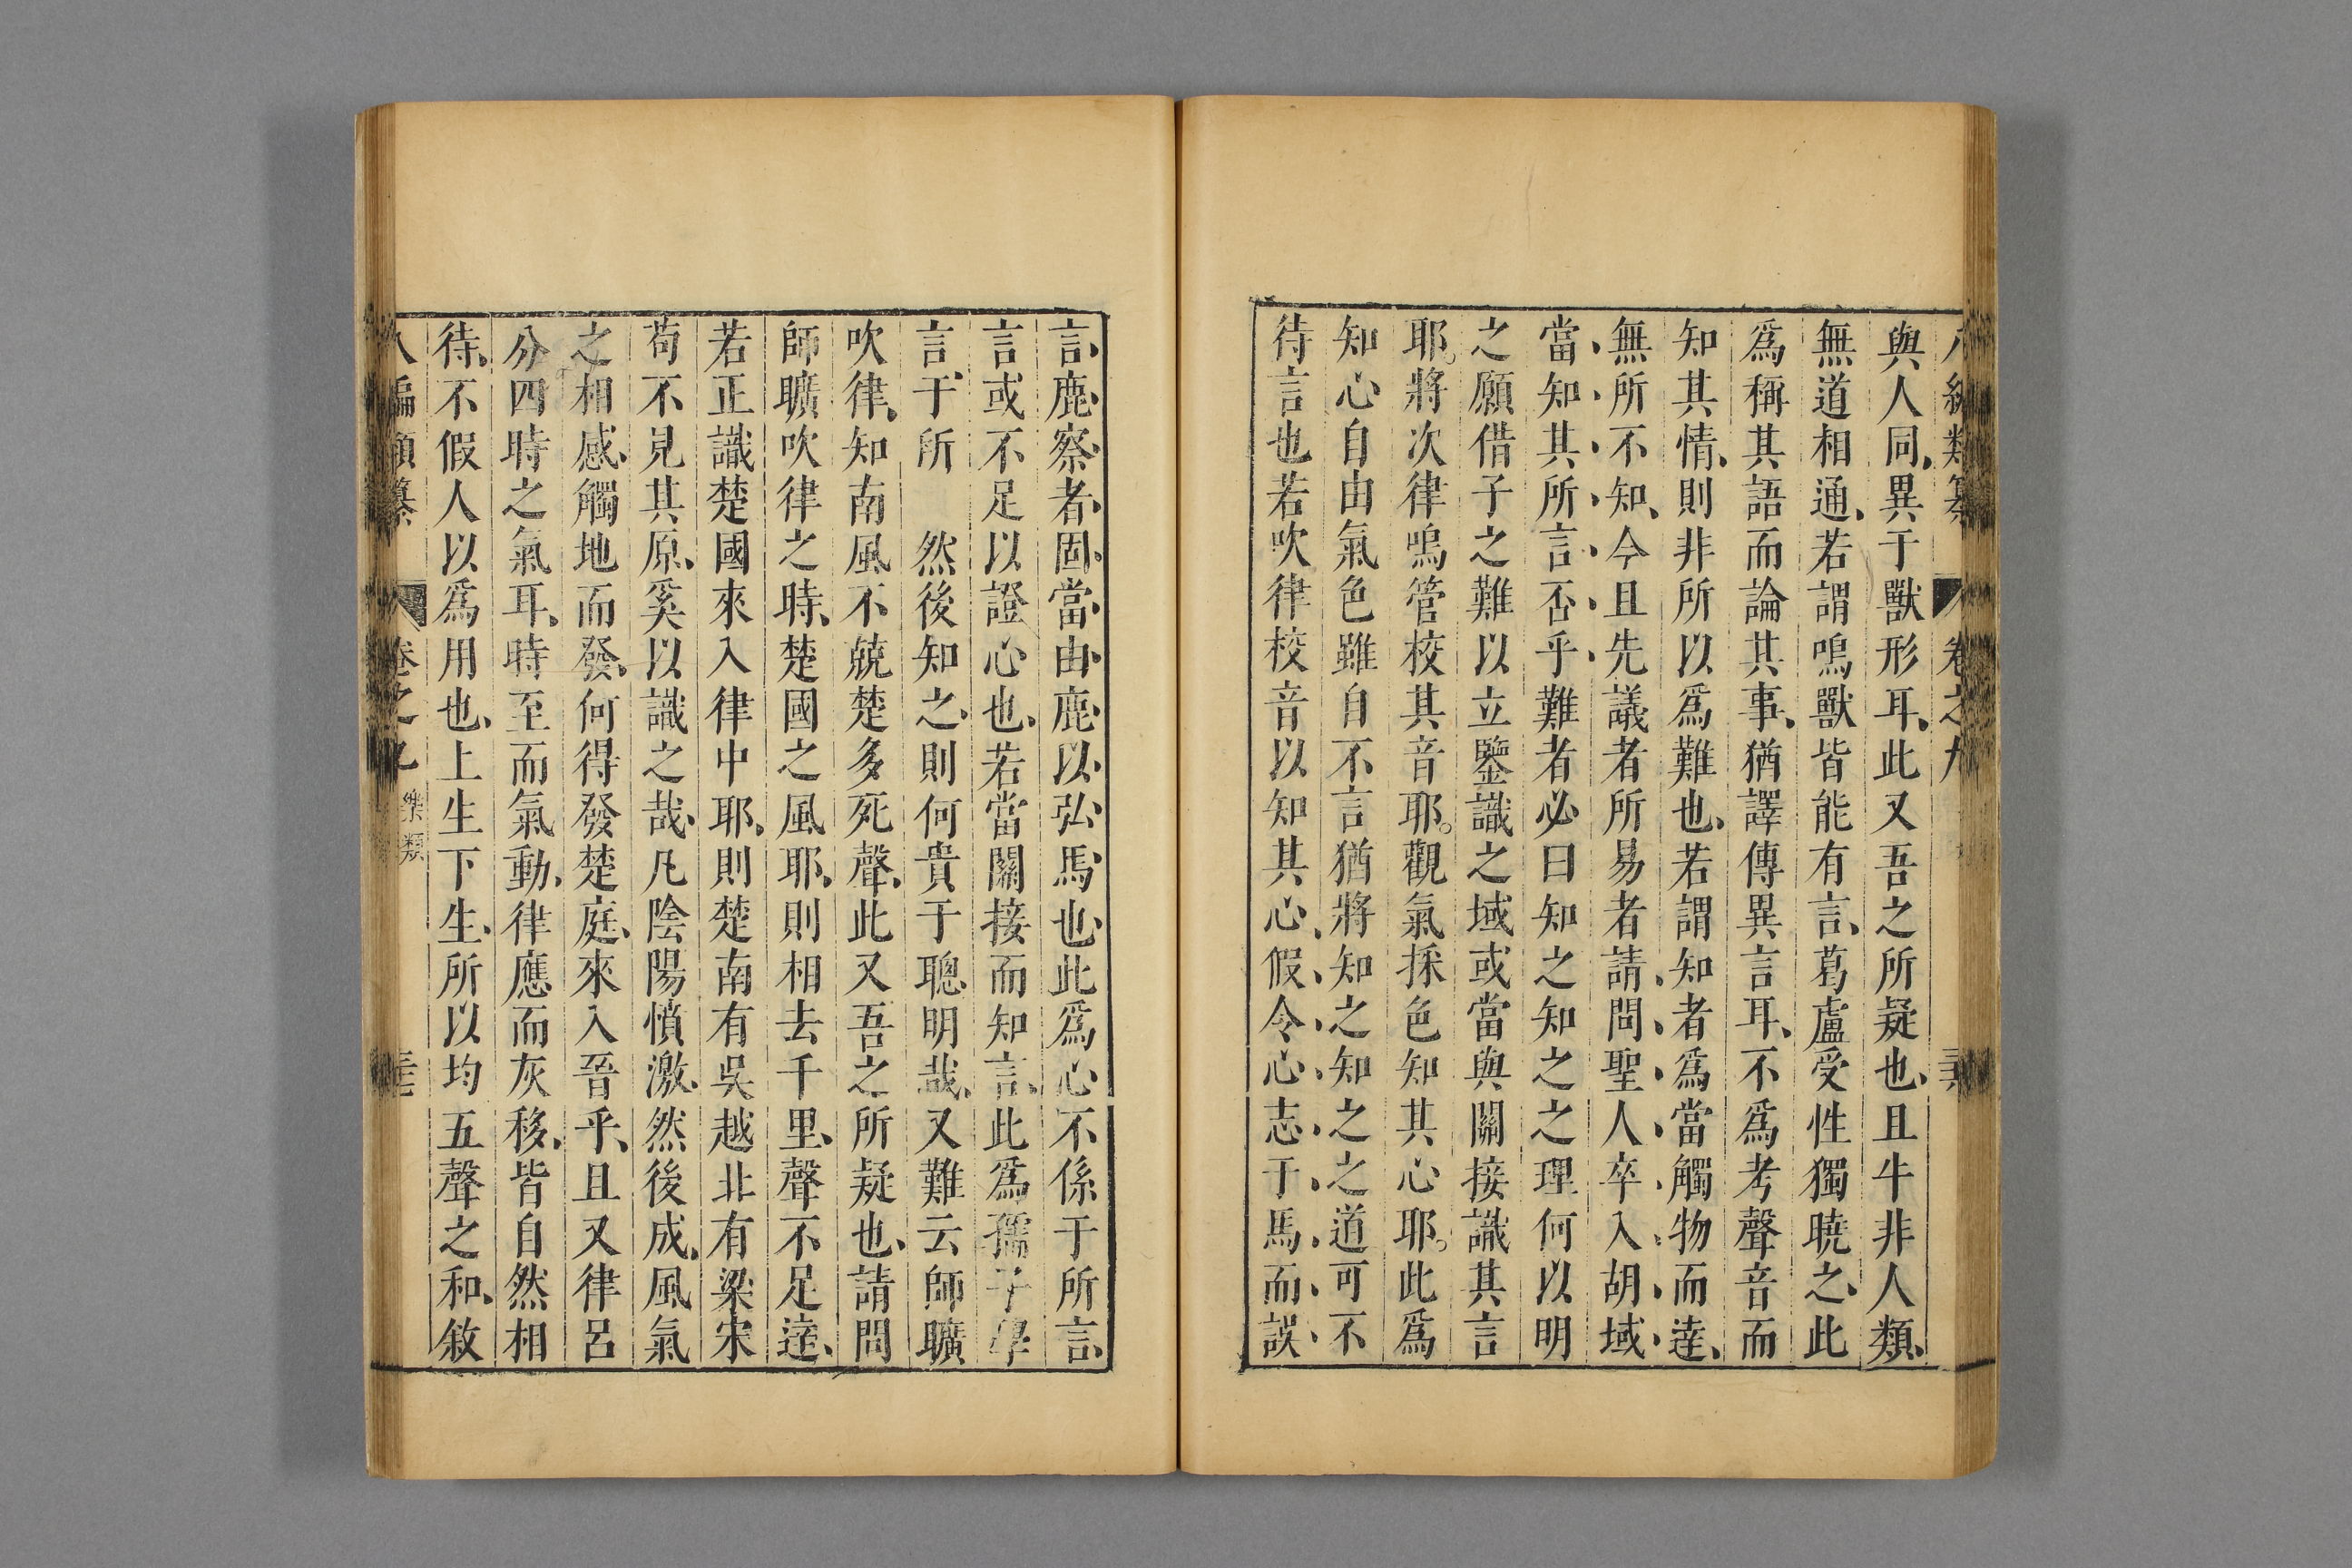 八編類纂 卷之九
與人同、異于獸形耳、此又吾之所疑也、且牛非人類、
無道相通、若謂鳴獸皆能有言、葛盧受性獨曉之、此
爲稱其語而論其事、猶譯傳異言耳、不爲考聲音而
知其情、則非所以爲難也、若謂知者爲當觸物而達、
無所不知、今且先議者所易者請問聖人卒入胡域、
當知其所言否乎、難者必曰知之知之之理何以明
之願借子之難以立鑒識之域或當與關接識其言
耶。將次律鳴管校其音耶。觀氣採色知其心耶。此爲
知心自由氣色雖自不言猶將知之知之之道可不
待言也若吹律校音以知其心、假令心志于馬而誤
言鹿察者固當由鹿以弘馬也、此爲心不係于所言、
言或不足以證心也、若當關接而知言、此爲孺子學
言、于所 然後知之、則何貴于聰明哉、又難云師曠
吹律、知南風不競楚多死聲、此又吾之所疑也、請問
師曠吹律之時、楚國之風耶、則相去千里、聲不足達、
若正識楚國來入律中耶、則楚南有吳越北有梁宋
苟不見其原、奚以識之哉、凡陰陽憤激、然後成風氣
之相感、觸地而發、何得發楚庭、來入晉乎、且又律呂
分四時之氣耳、時至而氣動、律應而灰移、皆自然相
待、不假人以爲用也、上生下生、所以均五聲之和、敘
八編類纂 卷之九 樂類